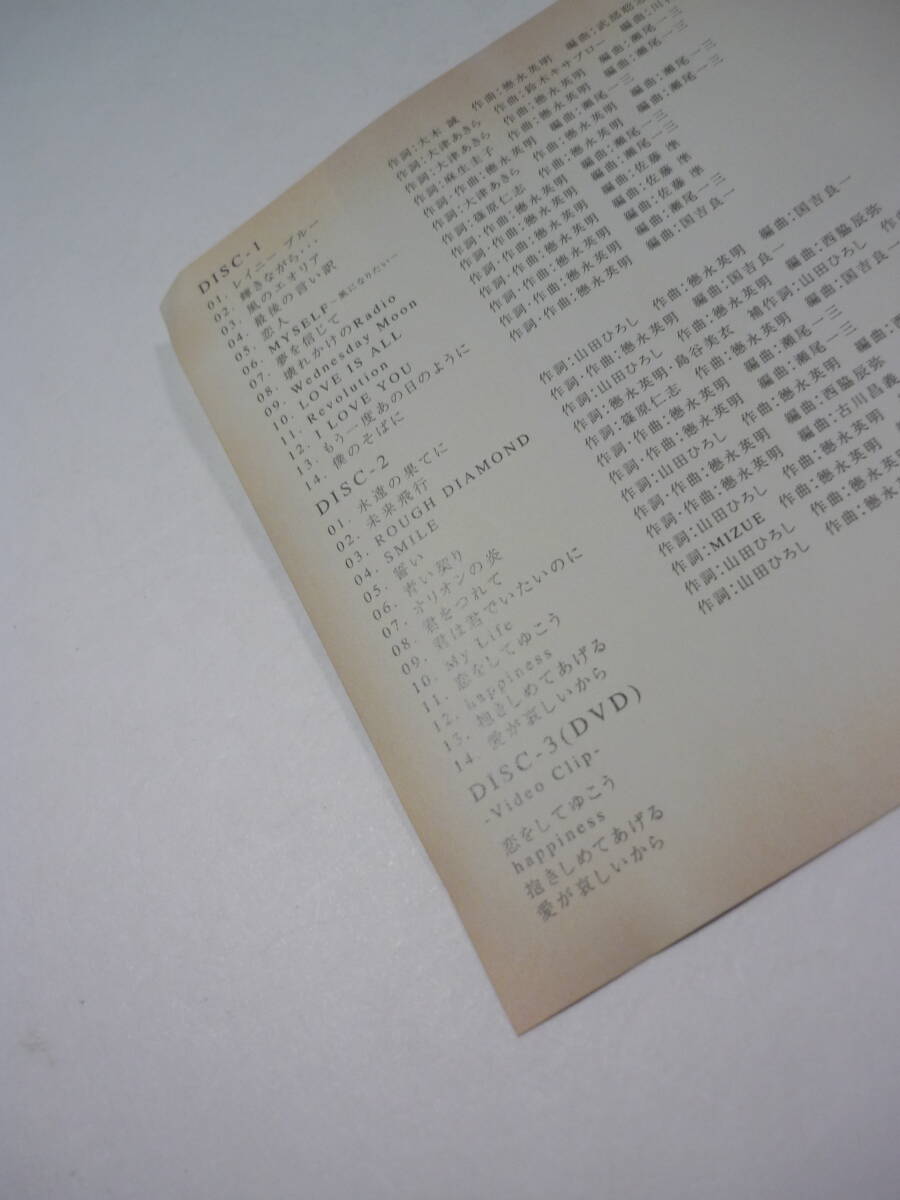 DISC-1
01. レイニー ブルー
02. 輝きながら…
03. 風のエオリア
04. 最後の言い訳
05. 恋人
06. MYSELF～風になりたい～
07. 夢を信じて
08. 壊れかけのRadio
09. Wednesday Moon
10. LOVE IS ALL
11. Revolution
12. I LOVE YOU
13. もう一度あの日のように
14. 僕のそばに
DISC-2
01. 永遠の果てに
02. 未来飛行
03. ROUGH DIAMOND
04. SMILE
05. 誓い
06. 青い契り
07. オリオンの炎
08. 君をつれて
09. 君は君でいたいのに
10. My Life
11. 恋をしてゆこう
12. happiness
13. 抱きしめてあげる
14. 愛が哀しいから
DISC-3(DVD)
-Video Clip-
恋をしてゆこう
happiness
抱きしめてあげる
愛が哀しいから
作詞:大木 誠 作曲:徳永英明 編曲:武部聡
作詞:大津あきら 作曲:鈴木キサブロー 編曲:川
作詞:大津あきら 作曲:徳永英明 編曲:瀬尾一三
作詞:麻生圭子 作曲:徳永英明 編曲:瀬尾一三
作詞・作曲:徳永英明 編曲:瀬尾一三
作詞:大津あきら 作曲:徳永英明 編曲:瀬尾一三
作詞:篠原仁志 作曲:徳永英明 編曲:瀬尾一三
作詞・作曲:徳永英明 編曲:瀬尾一三
作詞・作曲:徳永英明 編曲:佐藤 準
作詞・作曲:徳永英明 編曲:佐藤 準
作詞・作曲:徳永英明 編曲:瀬尾一三
作詞・作曲:徳永英明 編曲:国吉良一
作詞:山田ひろし 作曲:徳永英明 編曲:国吉良一
作詞・作曲:徳永英明 編曲:国吉良一
作詞:山田ひろし 作曲:徳永英明 編曲:西脇辰弥
作詞:徳永英明・島谷美衣 補作詞:山田ひろし 作
作詞:篠原仁志 作曲:徳永英明 編曲:国吉良一
作詞・作曲:徳永英明 編曲:瀬尾一三
作詞:山田ひろし 作曲:徳永英明
作詞・作曲:徳永英明 編曲:西脇辰弥
作詞・作曲:徳永英明 編曲:古川昌義
作詞:山田ひろし 作曲:徳永英明
作詞:MIZUE 作曲:徳永英明
作詞:山田ひろし 作曲:徳永英明
作詞:山田ひろし 作曲:徳永英